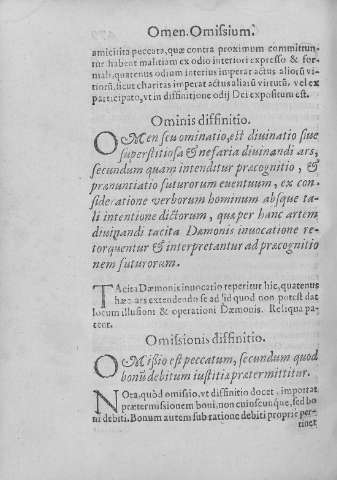 Omen. Omissium.
amicitia peccata, quæ contra proximum committun-
tur habent malitiam ex odio interiori expresso & for-
mali, quatenus odium interius imperat actus aliorũ vi-
tiorũ, sicut charitas imperat actus aliarũ virtutũ, vel ex
participato, vt in diffinitione odij Dei expositum est.
Ominis diffinitio.
OMen seu ominatio, est diuinatio siue
superstitiosa & nefaria diuinandi ars,
secundum quam intenditur præcognitio, &
prænuntiatio futurorum euentuum, ex con-
sideratione verborum hominum absque ta-
li intentione dictorum, quæ per hanc artem
diuinandi tacita Dæmonis inuocatione re-
torquentur & interpretantur ad præcognitio
nem futurorum.
TAcita Dæmonis inuocatio reperitur hic, quatenus
hæc ars extendendo se ad id quod non potest dat
locum illusioni & operationi Dæmonis. Reliqua pa-
tent.
Omissionis diffinitio.
OMissio est peccatum, secundum quod
bonũ debitum iustitiæ prætermittitur.
NOta, quòd omissio, vt diffinitio docet, importat
prætermissionem boni, non cuiuscunque, sed bo
ni debiti. Bonum autem sub ratione debiti propriè per-
tinet